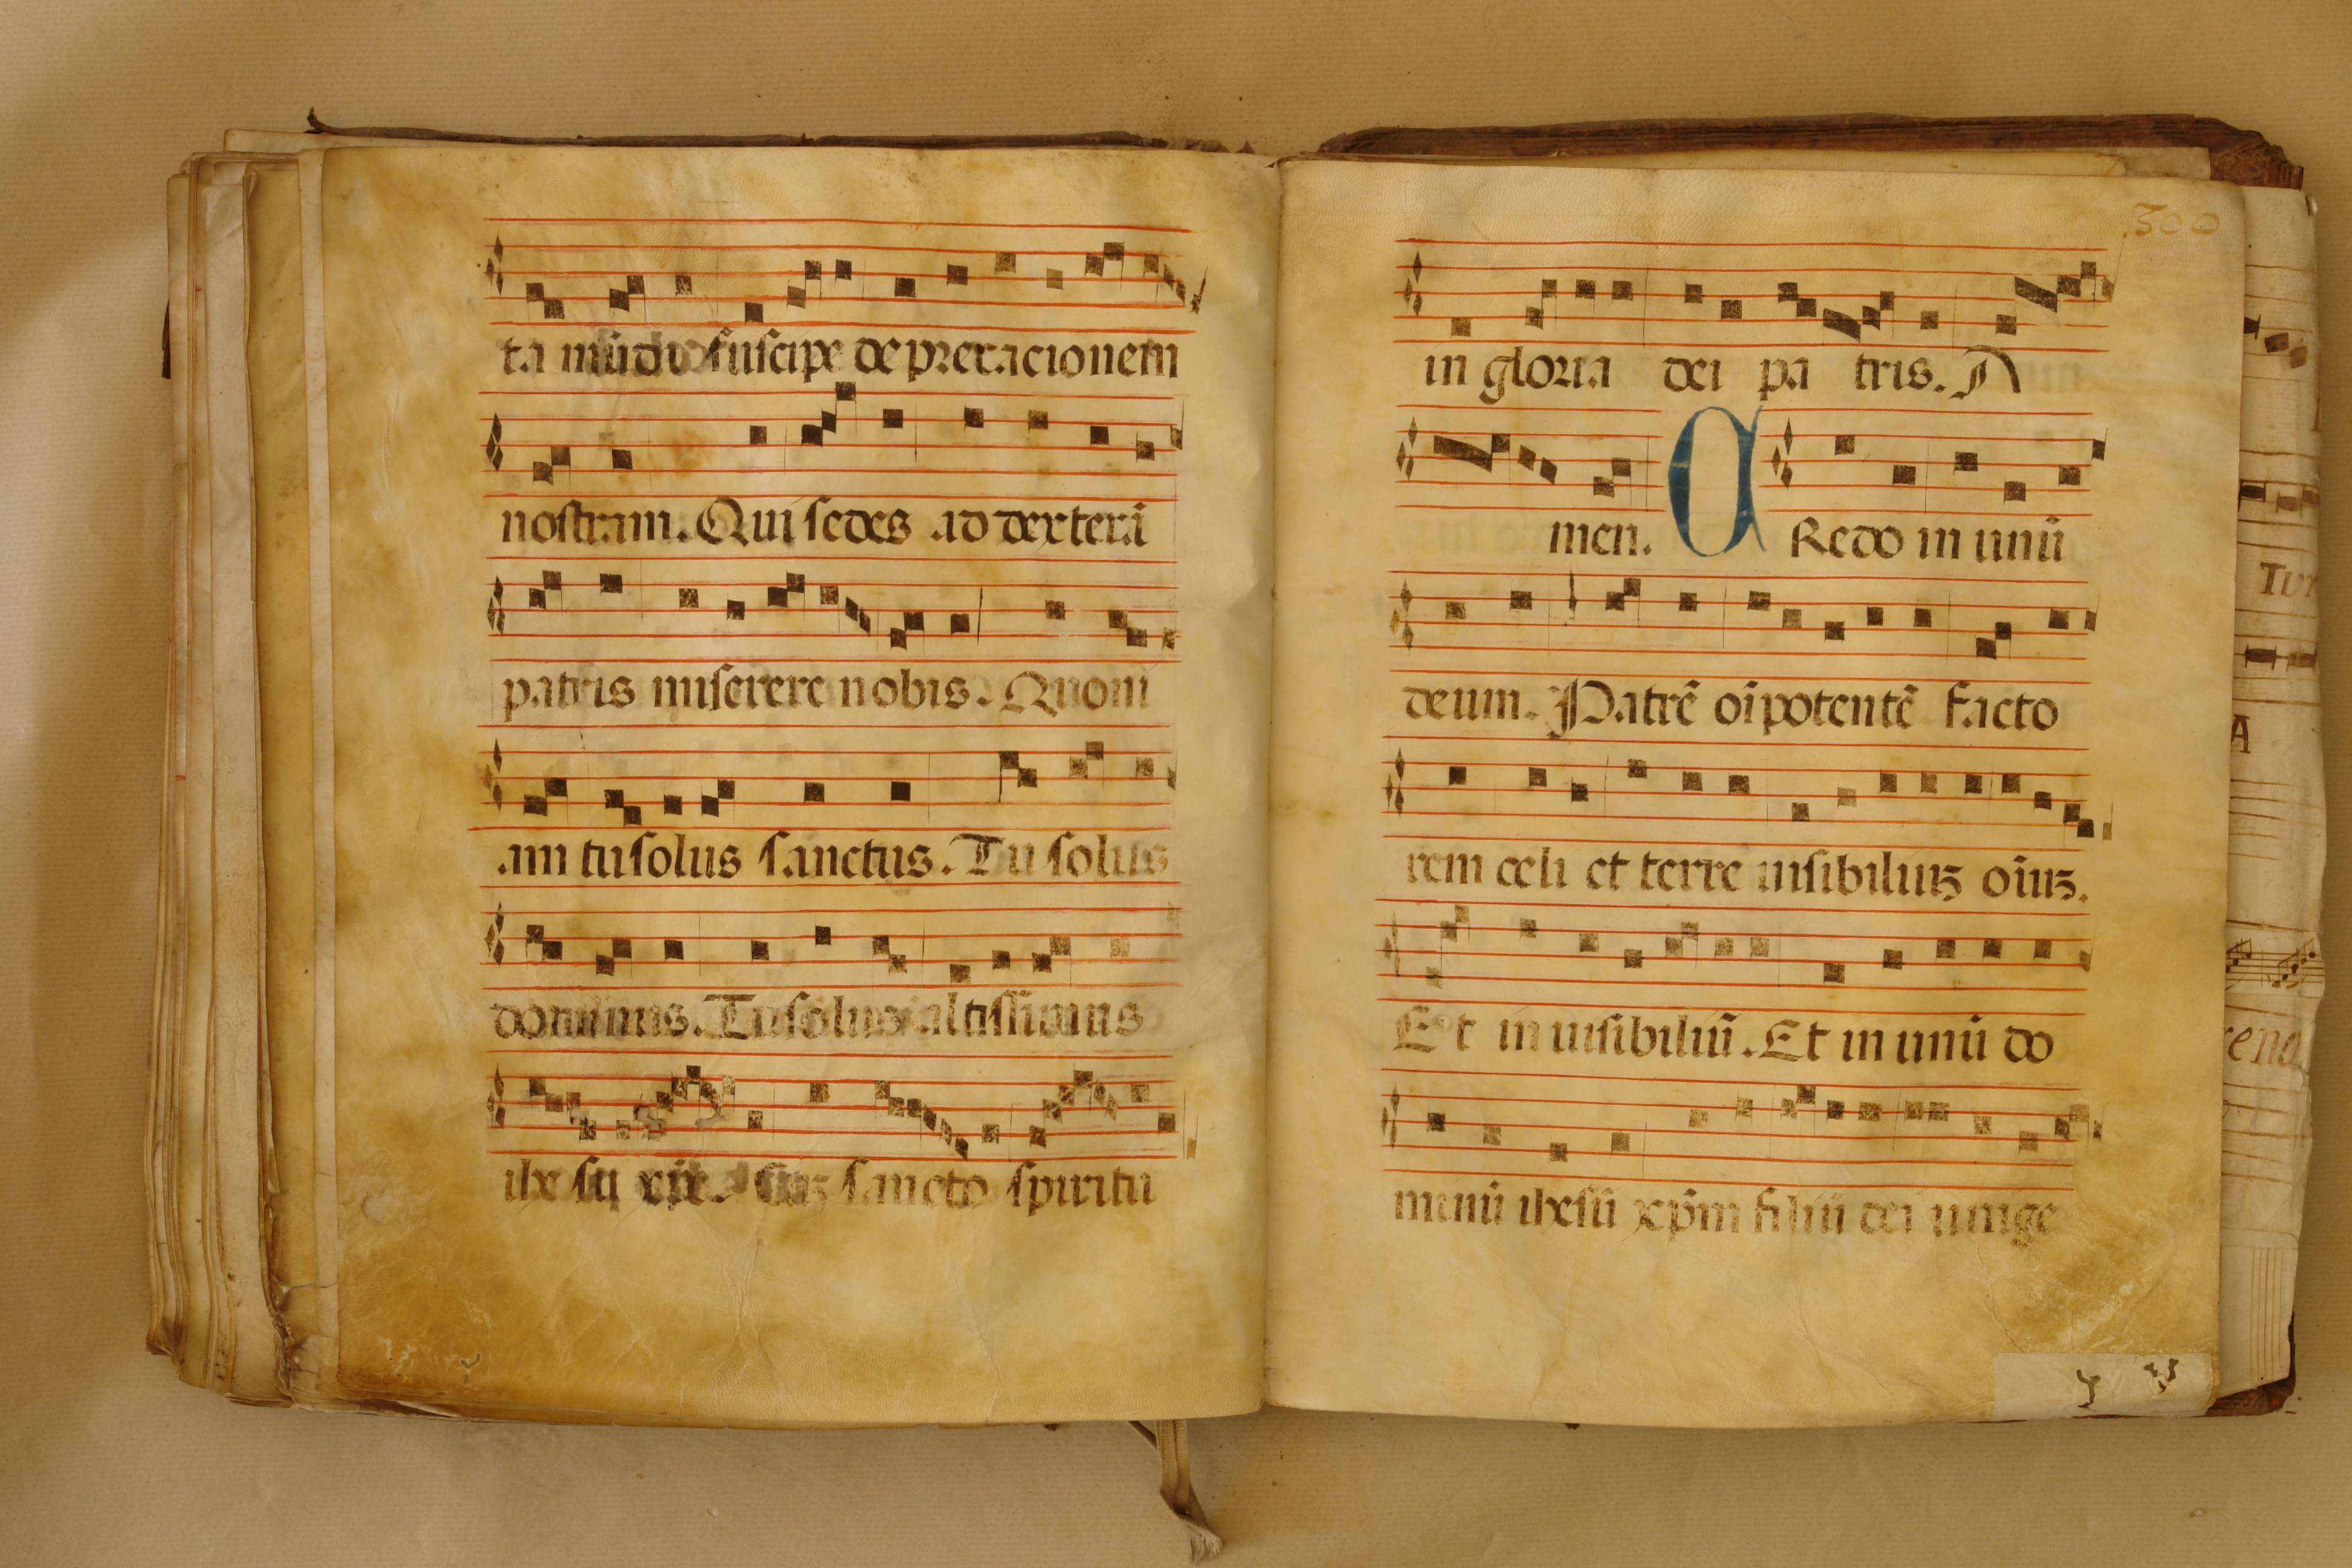 ta mūdi suscipe deprecacionem
nostram. Qui sedes ad dexterā
patris miserere nobis. Quoni
am tu solus sanctus. Tu solus
dominus. Tu solus altissimus
ihesu xpē. Cuʒ sancto spiritu
300
in gloria dei patris. A
men. CRedo in unū
deum. Patrē oīpotentē facto
rem celi et terre uisibiliuʒ oīuʒ.
Et inuisibiliū. Et in unū do
minū ihesū xp̄m filiū dei unige
TUr
A
rena